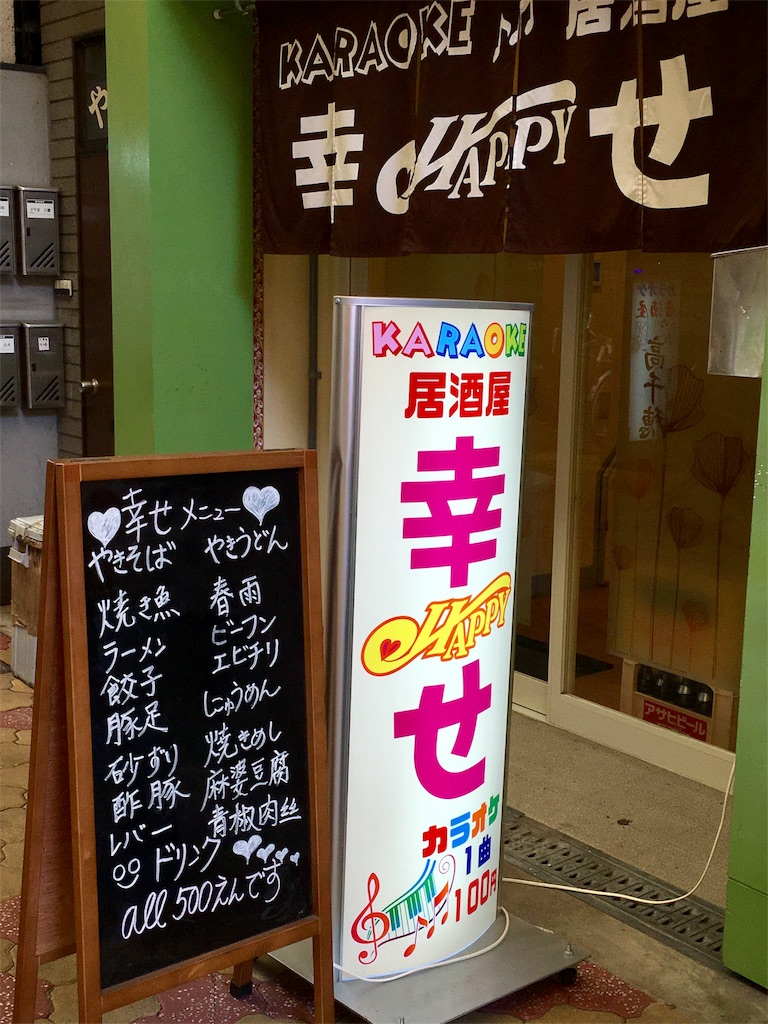 KARAOKE 居酒屋
幸 HAPPY せ
や
KARAOKE
居酒屋
幸
HAPPY
せ
カラオケ
1曲
100円
幸せメニュー
やきそば
焼き魚
ラーメン
餃子
豚足
砂ずり
酢豚
レバー
やきうどん
春雨
ビーフン
エビチリ
にゅうめん
焼きめし
麻婆豆腐
青椒肉絲
ドリンク
all 500えんです
カラオケ
居酒屋
高千穂
アサヒビール